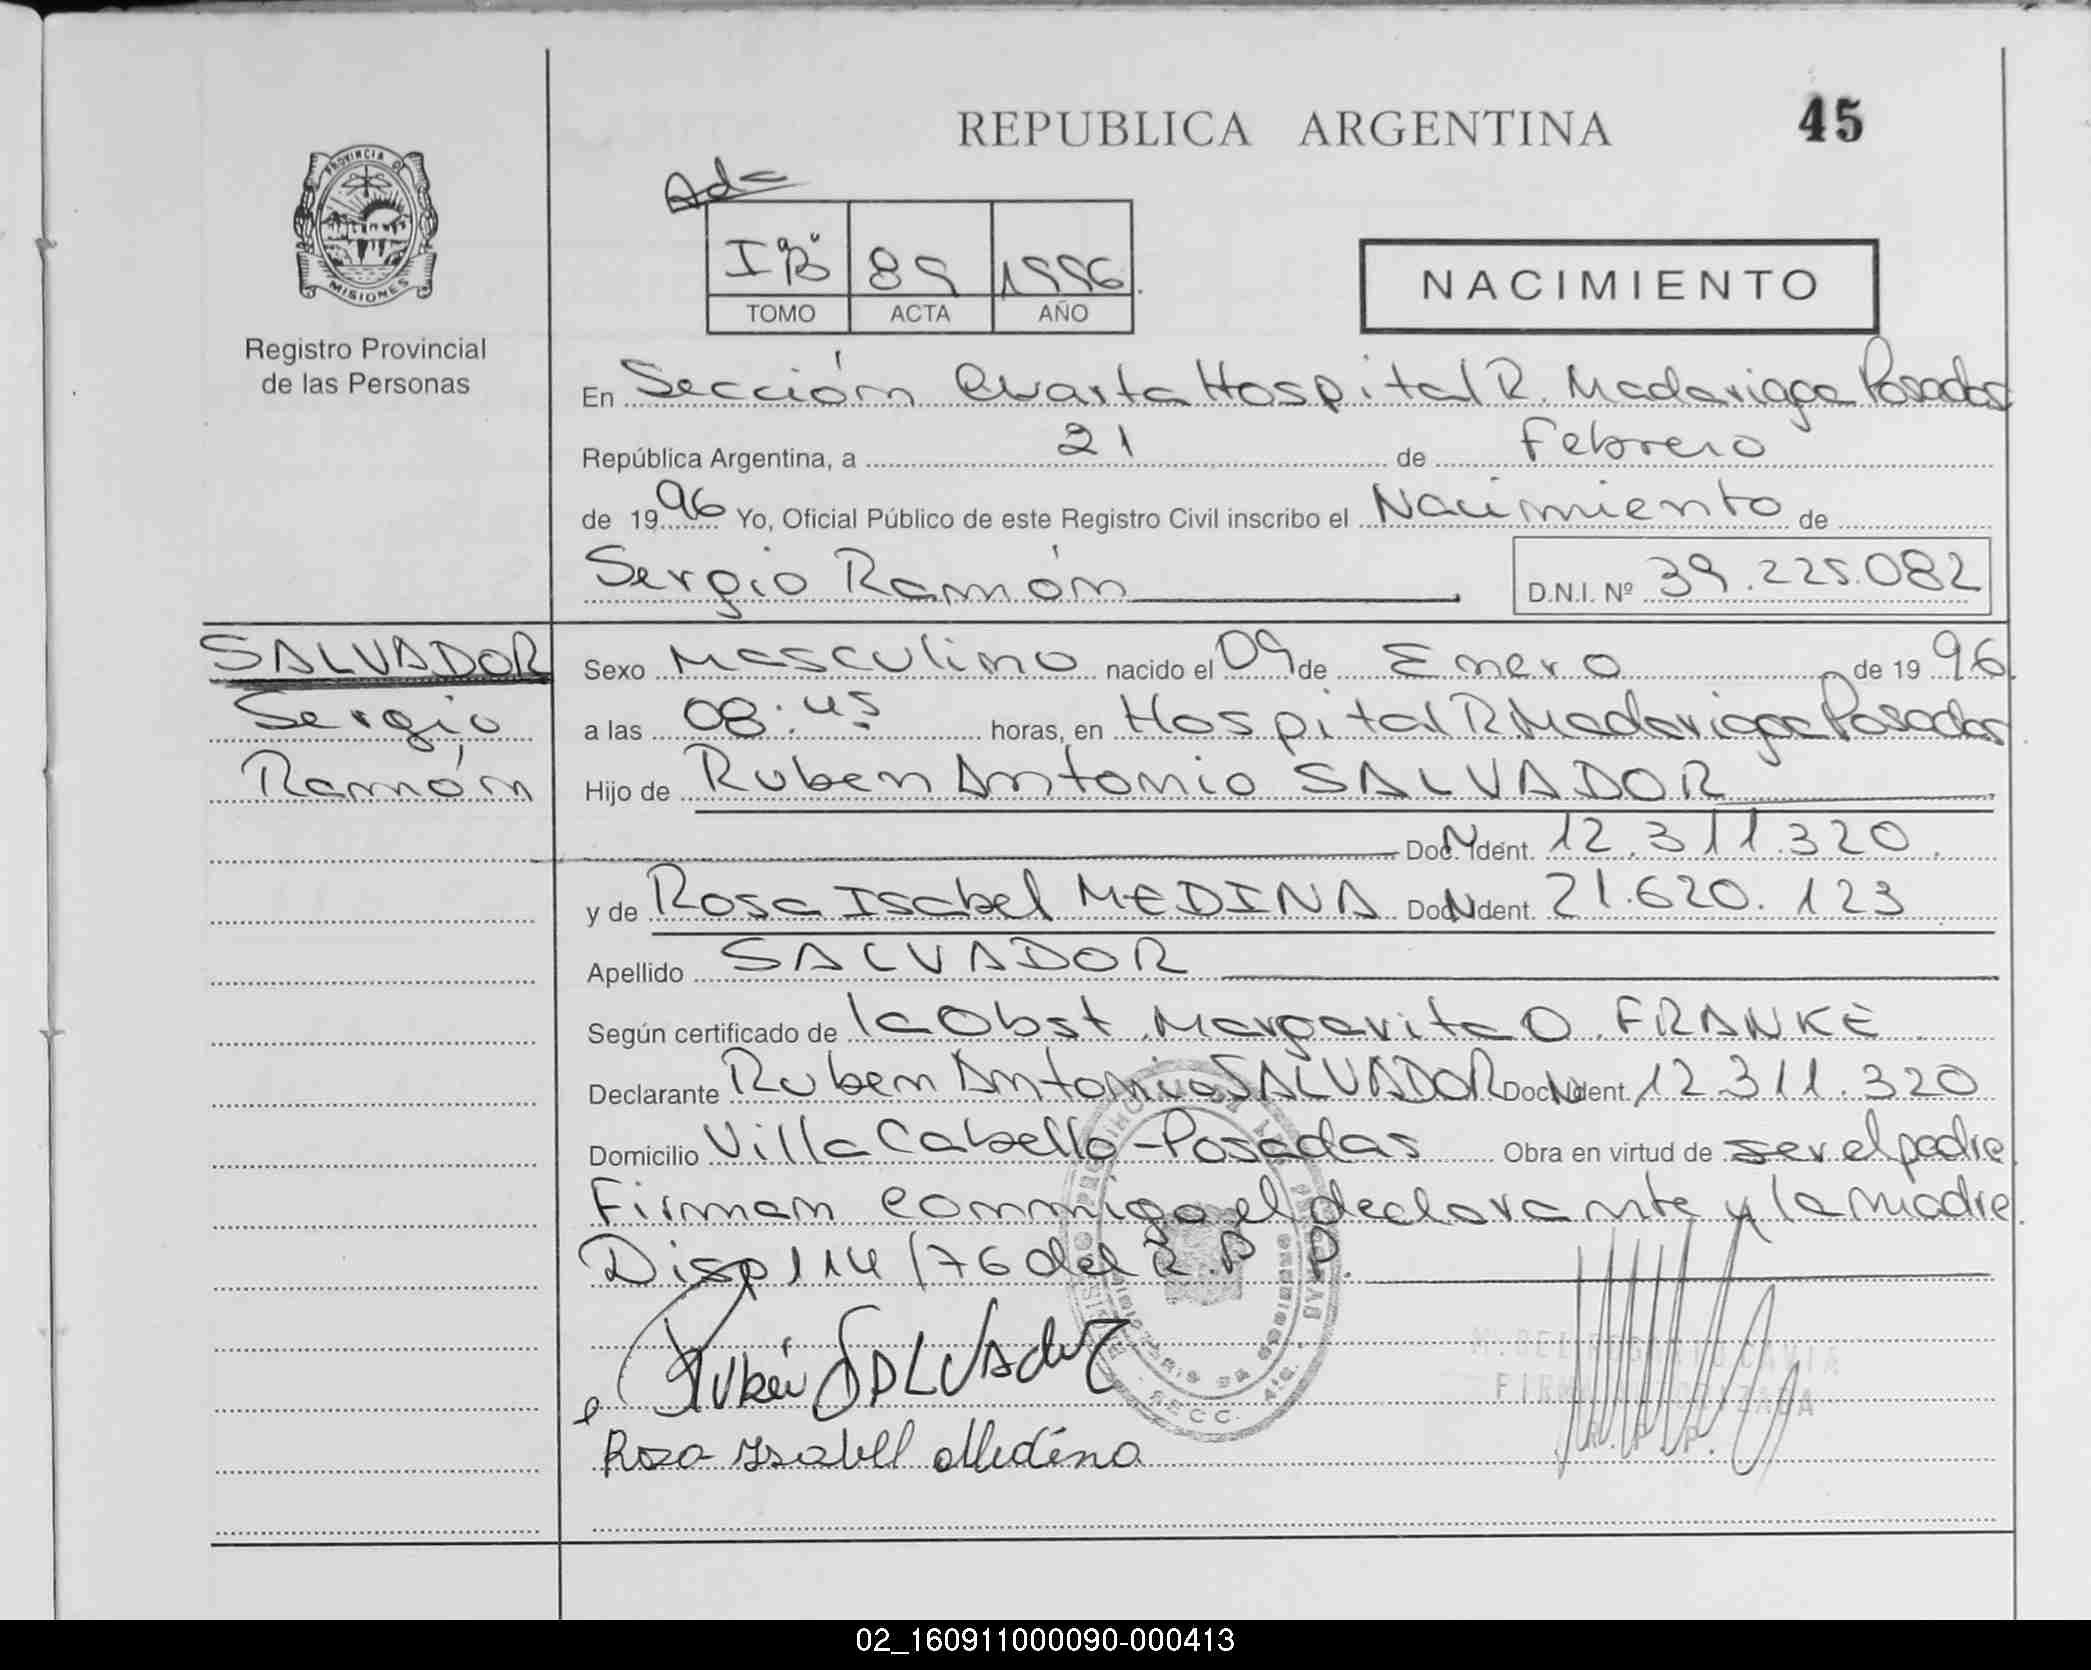 REPUBLICA ARGENTINA
45
PROVINCIA DE
MISIONES
Registro Provincial
de las Personas
Ad=
I "B" 89 1996.
TOMO ACTA AÑO
NACIMIENTO
En Sección Cuarta Hospital R. Madariaga Posadas
República Argentina, a 21 de Febrero
de 1996 Yo, Oficial Público de este Registro Civil inscribo el Nacimiento de
Sergio Ramón
D.N.I. Nº 39.225.082
SALVADOR
Sergio
Ramón
Sexo Masculino nacido el 09 de Enero de 1996.
a las 08:45 horas, en Hospital R. Madariaga Posadas
Hijo de Ruben Antonio SALVADOR
Doc. N Ident. 12.311.320.
y de Rosa Isabel MEDINA Doc N Ident. 21.620.123
Apellido SALVADOR
Según certificado de la Obst. Margarita O. FRANKE
Declarante Ruben Antonio SALVADOR Doc N Ident. 12.311.320
Domicilio Villa Cabello-Posadas Obra en virtud de ser el padre.
Firman conmigo el declarante y la madre.
Disp 114/76 del R.P.P.
Rubén SALVAdoR
Rosa Isabell Medina
FIRMA AUTORIZADA
R.P.P.
02_160911000090-000413